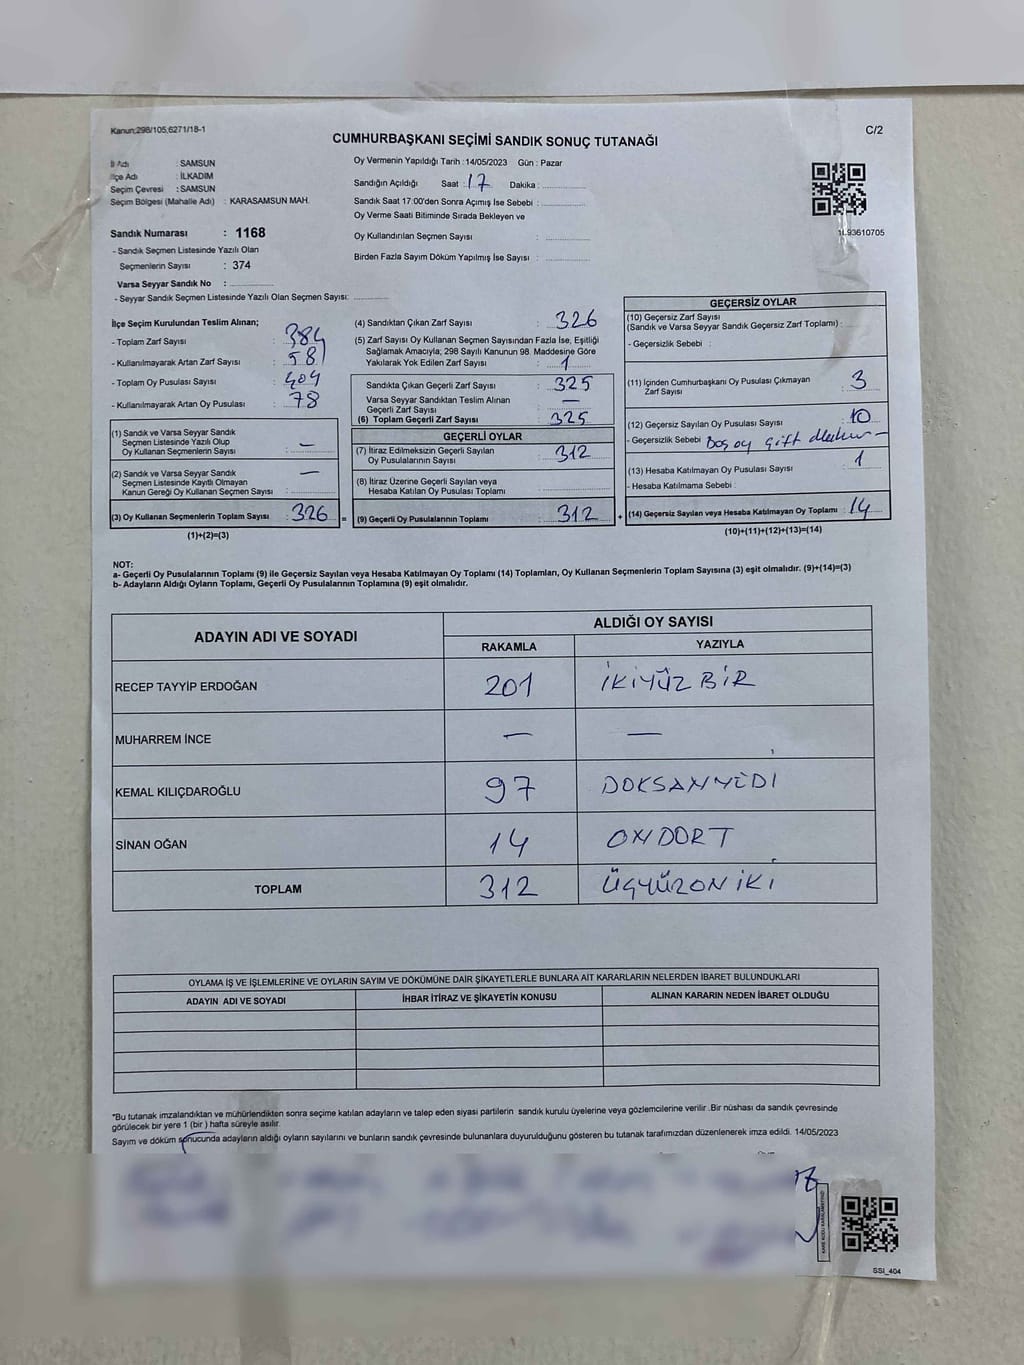 Kanun:298/105,6271/18-1
C/2
CUMHURBAŞKANI SEÇİMİ SANDIK SONUÇ TUTANAĞI
İl Adı : SAMSUN
İlçe Adı : İLKADIM
Seçim Çevresi : SAMSUN
Seçim Bölgesi (Mahalle Adı) : KARASAMSUN MAH.
Sandık Numarası : 1168
- Sandık Seçmen Listesinde Yazılı Olan
Seçmenlerin Sayısı : 374
Varsa Seyyar Sandık No :
- Seyyar Sandık Seçmen Listesinde Yazılı Olan Seçmen Sayısı:
Oy Vermenin Yapıldığı Tarih : 14/05/2023 Gün : Pazar
Sandığın Açıldığı Saat : 17 Dakika :
Sandık Saat 17:00'den Sonra Açımış İse Sebebi :
Oy Verme Saati Bitiminde Sırada Bekleyen ve
Oy Kullandırılan Seçmen Sayısı :
Birden Fazla Sayım Döküm Yapılmış İse Sayısı :
93610705
İlçe Seçim Kurulundan Teslim Alınan;
- Toplam Zarf Sayısı : 384
- Kullanılmayarak Artan Zarf Sayısı : 58
- Toplam Oy Pusulası Sayısı : 404
- Kullanılmayarak Artan Oy Pusulası : 78
(1) Sandık ve Varsa Seyyar Sandık
Seçmen Listesinde Yazılı Olup
Oy Kullanan Seçmenlerin Sayısı : —
(2) Sandık ve Varsa Seyyar Sandık
Seçmen Listesinde Kayıtlı Olmayan
Kanun Gereği Oy Kullanan Seçmen Sayısı : —
(3) Oy Kullanan Seçmenlerin Toplam Sayısı : 326 =
(1)+(2)=(3)
(4) Sandıktan Çıkan Zarf Sayısı : 326
(5) Zarf Sayısı Oy Kullanan Seçmen Sayısından Fazla İse, Eşitliği
Sağlamak Amacıyla; 298 Sayılı Kanunun 98. Maddesine Göre
Yakılarak Yok Edilen Zarf Sayısı : 1
Sandıkta Çıkan Geçerli Zarf Sayısı : 325
Varsa Seyyar Sandıktan Teslim Alınan
Geçerli Zarf Sayısı : —
(6) Toplam Geçerli Zarf Sayısı : 325
GEÇERLİ OYLAR
(7) İtiraz Edilmeksizin Geçerli Sayılan
Oy Pusulalarının Sayısı : 312
(8) İtiraz Üzerine Geçerli Sayılan veya
Hesaba Katılan Oy Pusulası Toplamı :
(9) Geçerli Oy Pusulalarının Toplamı : 312 +
GEÇERSİZ OYLAR
(10) Geçersiz Zarf Sayısı
(Sandık ve Varsa Seyyar Sandık Geçersiz Zarf Toplamı) :
- Geçersizlik Sebebi :
(11) İçinden Cumhurbaşkanı Oy Pusulası Çıkmayan
Zarf Sayısı : 3
(12) Geçersiz Sayılan Oy Pusulası Sayısı : 10
- Geçersizlik Sebebi Boş oy çift
(13) Hesaba Katılmayan Oy Pusulası Sayısı : 1
- Hesaba Katılmama Sebebi :
(14) Geçersiz Sayılan veya Hesaba Katılmayan Oy Toplamı : 14
(10)+(11)+(12)+(13)=(14)
NOT:
a- Geçerli Oy Pusulalarının Toplamı (9) ile Geçersiz Sayılan veya Hesaba Katılmayan Oy Toplamı (14) Toplamları, Oy Kullanan Seçmenlerin Toplam Sayısına (3) eşit olmalıdır. (9)+(14)=(3)
b- Adayların Aldığı Oyların Toplamı, Geçerli Oy Pusulalarının Toplamına (9) eşit olmalıdır.
ADAYIN ADI VE SOYADI
ALDIĞI OY SAYISI
RAKAMLA YAZIYLA
RECEP TAYYİP ERDOĞAN 201 İKİYÜZ BİR
MUHARREM İNCE — —
KEMAL KILIÇDAROĞLU 97 DOKSANYEDİ
SİNAN OĞAN 14 ONDÖRT
TOPLAM 312 ÜÇYÜZON İKİ
OYLAMA İŞ VE İŞLEMLERİNE VE OYLARIN SAYIM VE DÖKÜMÜNE DAİR ŞİKAYETLERLE BUNLARA AİT KARARLARIN NELERDEN İBARET BULUNDUKLARI
ADAYIN ADI VE SOYADI İHBAR İTİRAZ VE ŞİKAYETİN KONUSU ALINAN KARARIN NEDEN İBARET OLDUĞU
*Bu tutanak imzalandıktan ve mühürlendikten sonra seçime katılan adayların ve talep eden siyasi partilerin sandık kurulu üyelerine veya gözlemcilerine verilir .Bir nüshası da sandık çevresinde
görülecek bir yere 1 (bir ) hafta süreyle asılır.
Sayım ve döküm sonucunda adayların aldığı oyların sayılarını ve bunların sandık çevresinde bulunanlara duyurulduğunu gösteren bu tutanak tarafımızdan düzenlenerek imza edildi. 14/05/2023
SSI_404